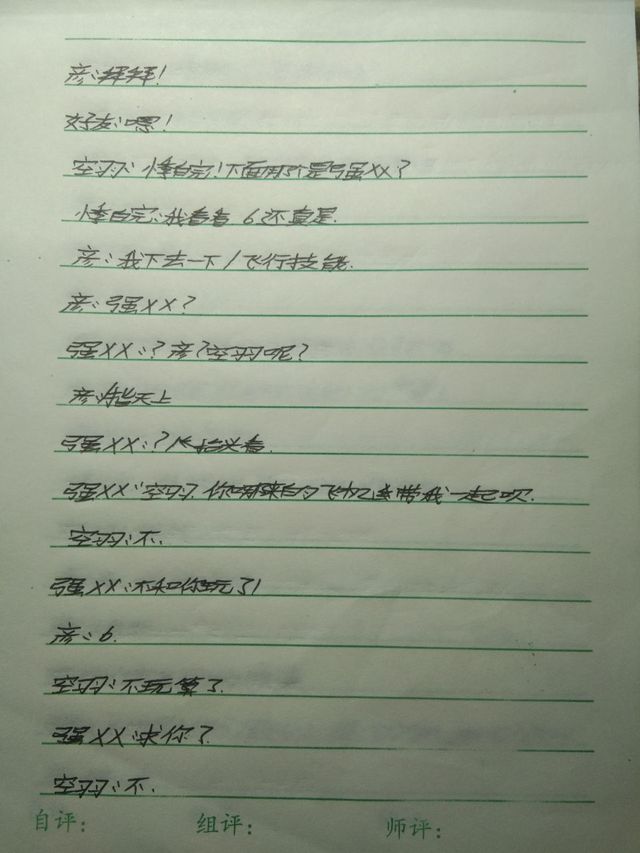 彦:拜拜!
好友:嘿!
空羽:悸白完!下面那个是强XX?
悸白完:我看看.6还真是.
彦:我下去一下/飞行技能.
彦:强XX?
强XX:?彦?空羽呢?
彦:指天上
强XX:?/抬头看.
强XX:空羽.你哪来的飞机连带我一起呗.
空羽:不.
强XX:不和你玩了!
彦:6.
空羽:不玩算了.
强XX:求你了.
空羽:不.
自评: 组评: 师评: